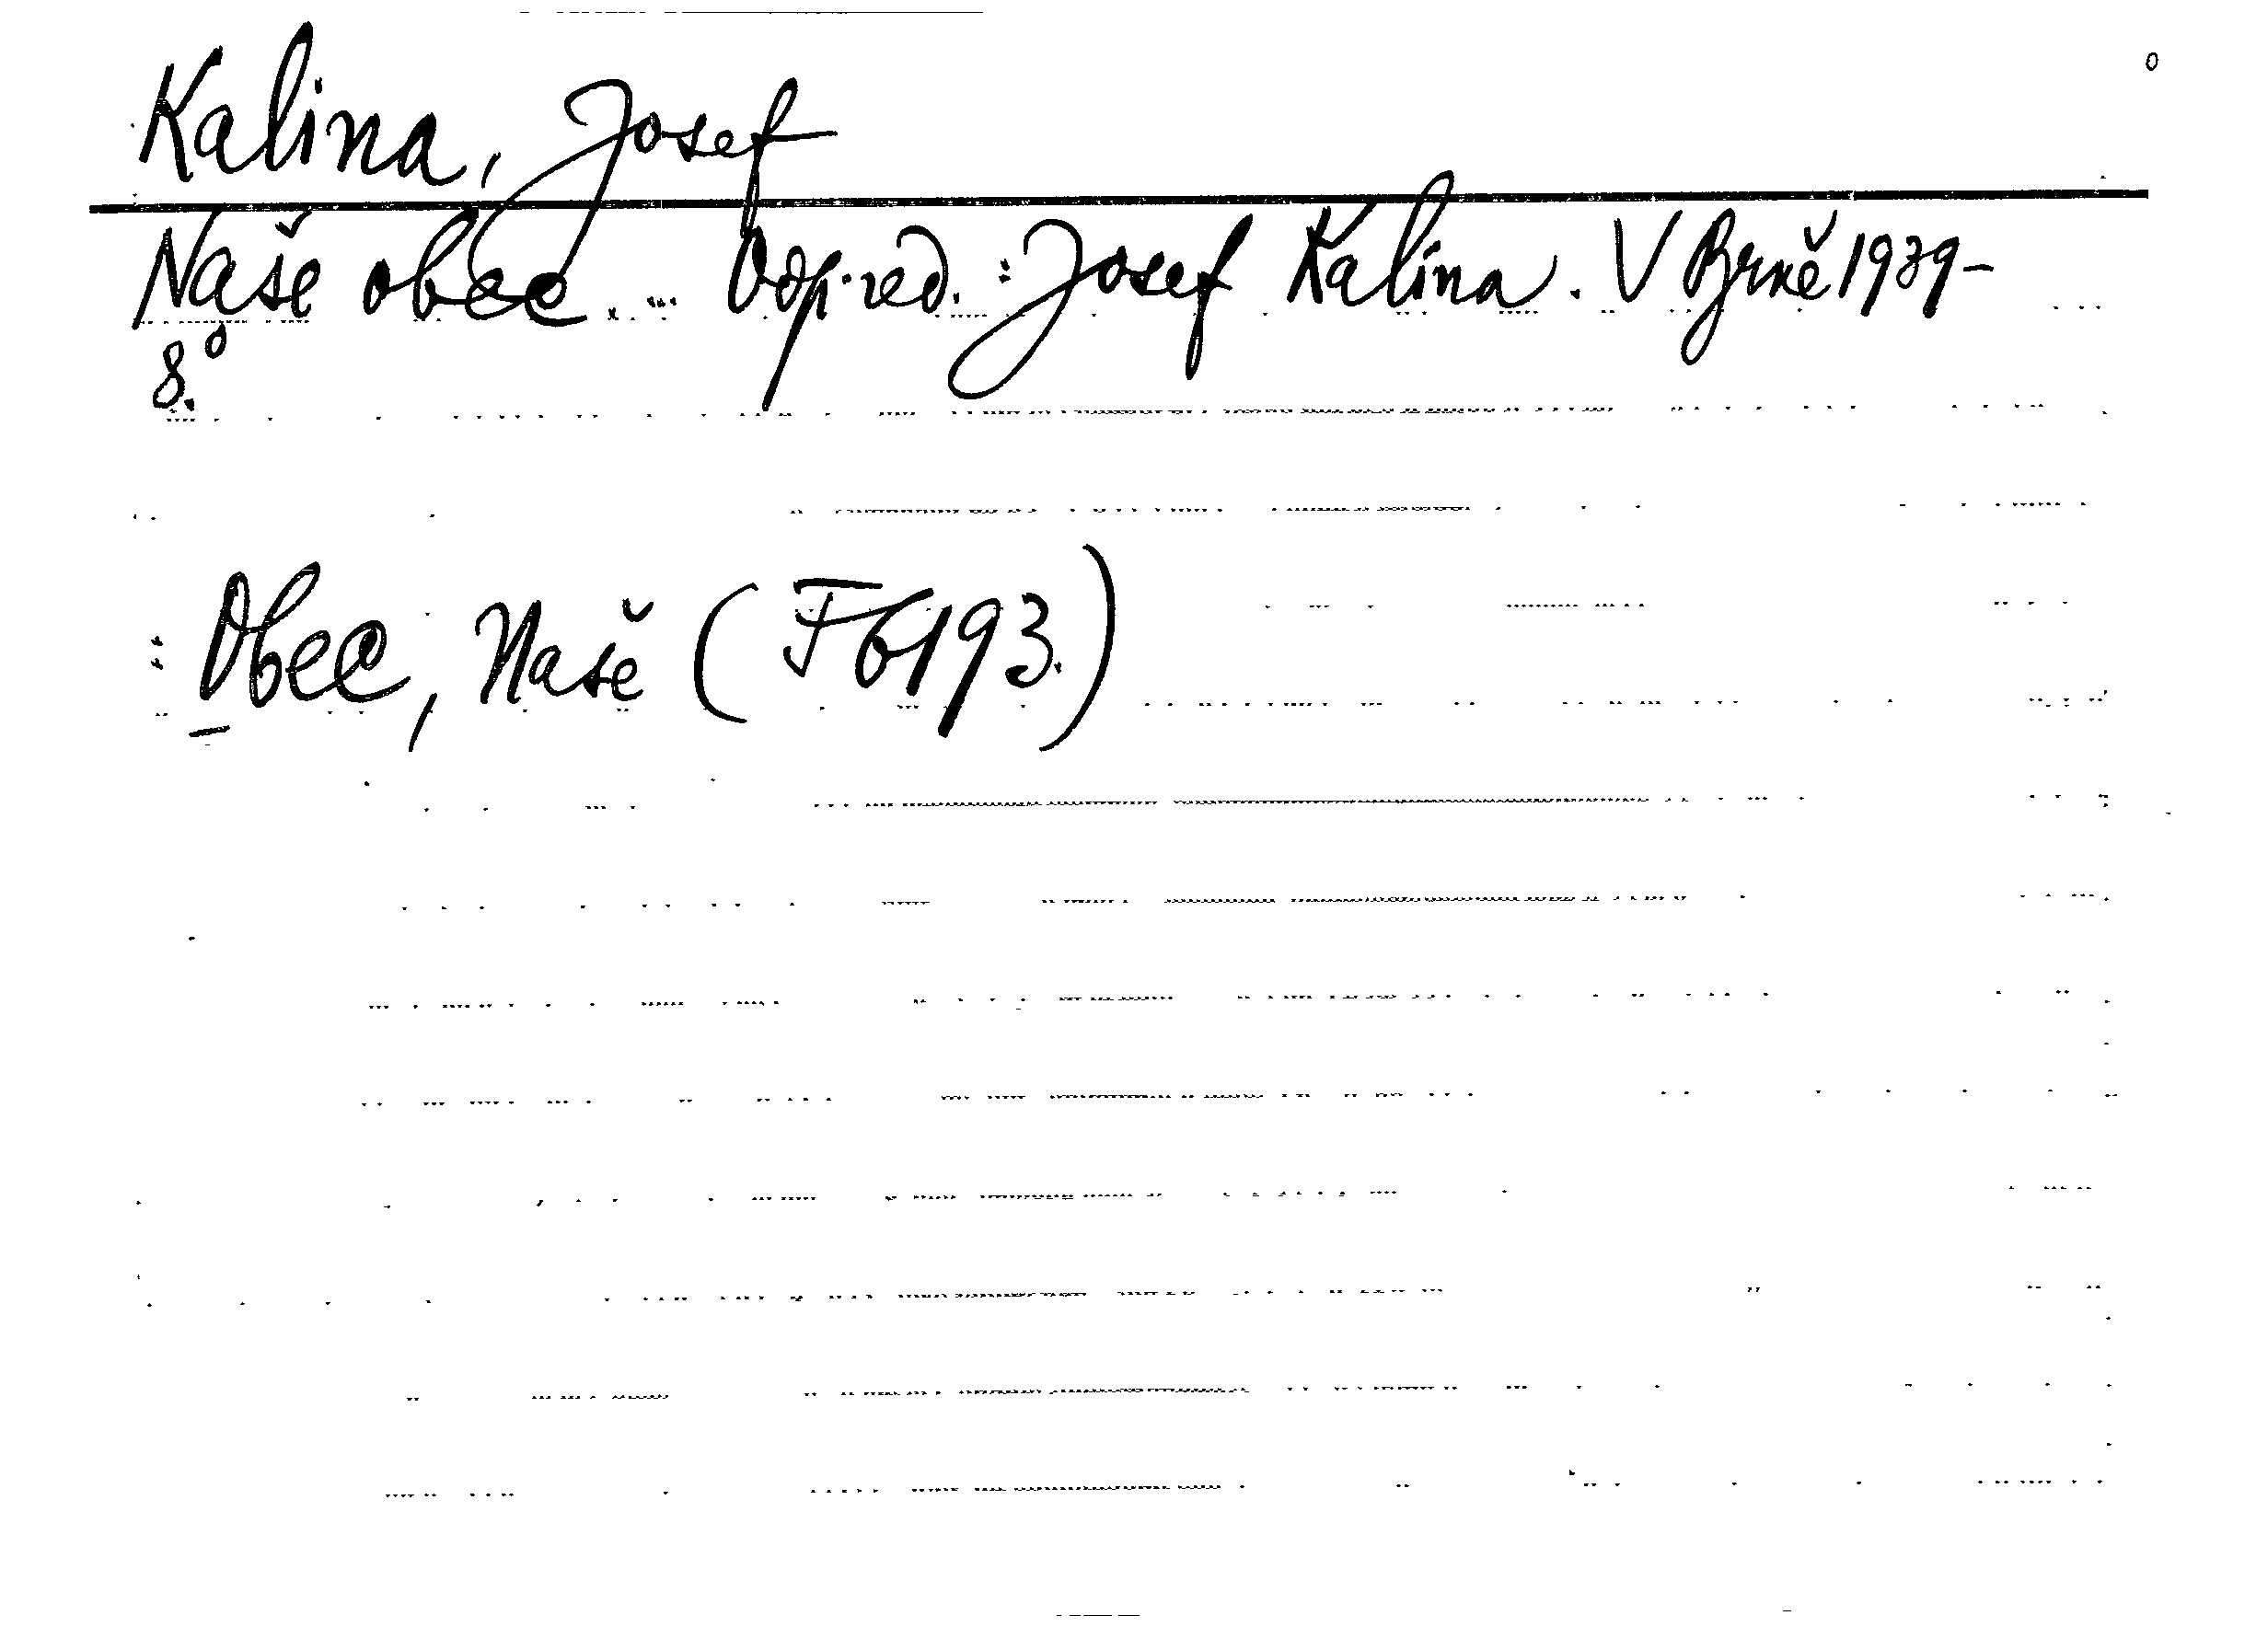 Kalina, Josef
Naše obec ... Odp. red. : Josef Kalina. V Brně 1939-
8.°
: Obec, Naše (F6193.)